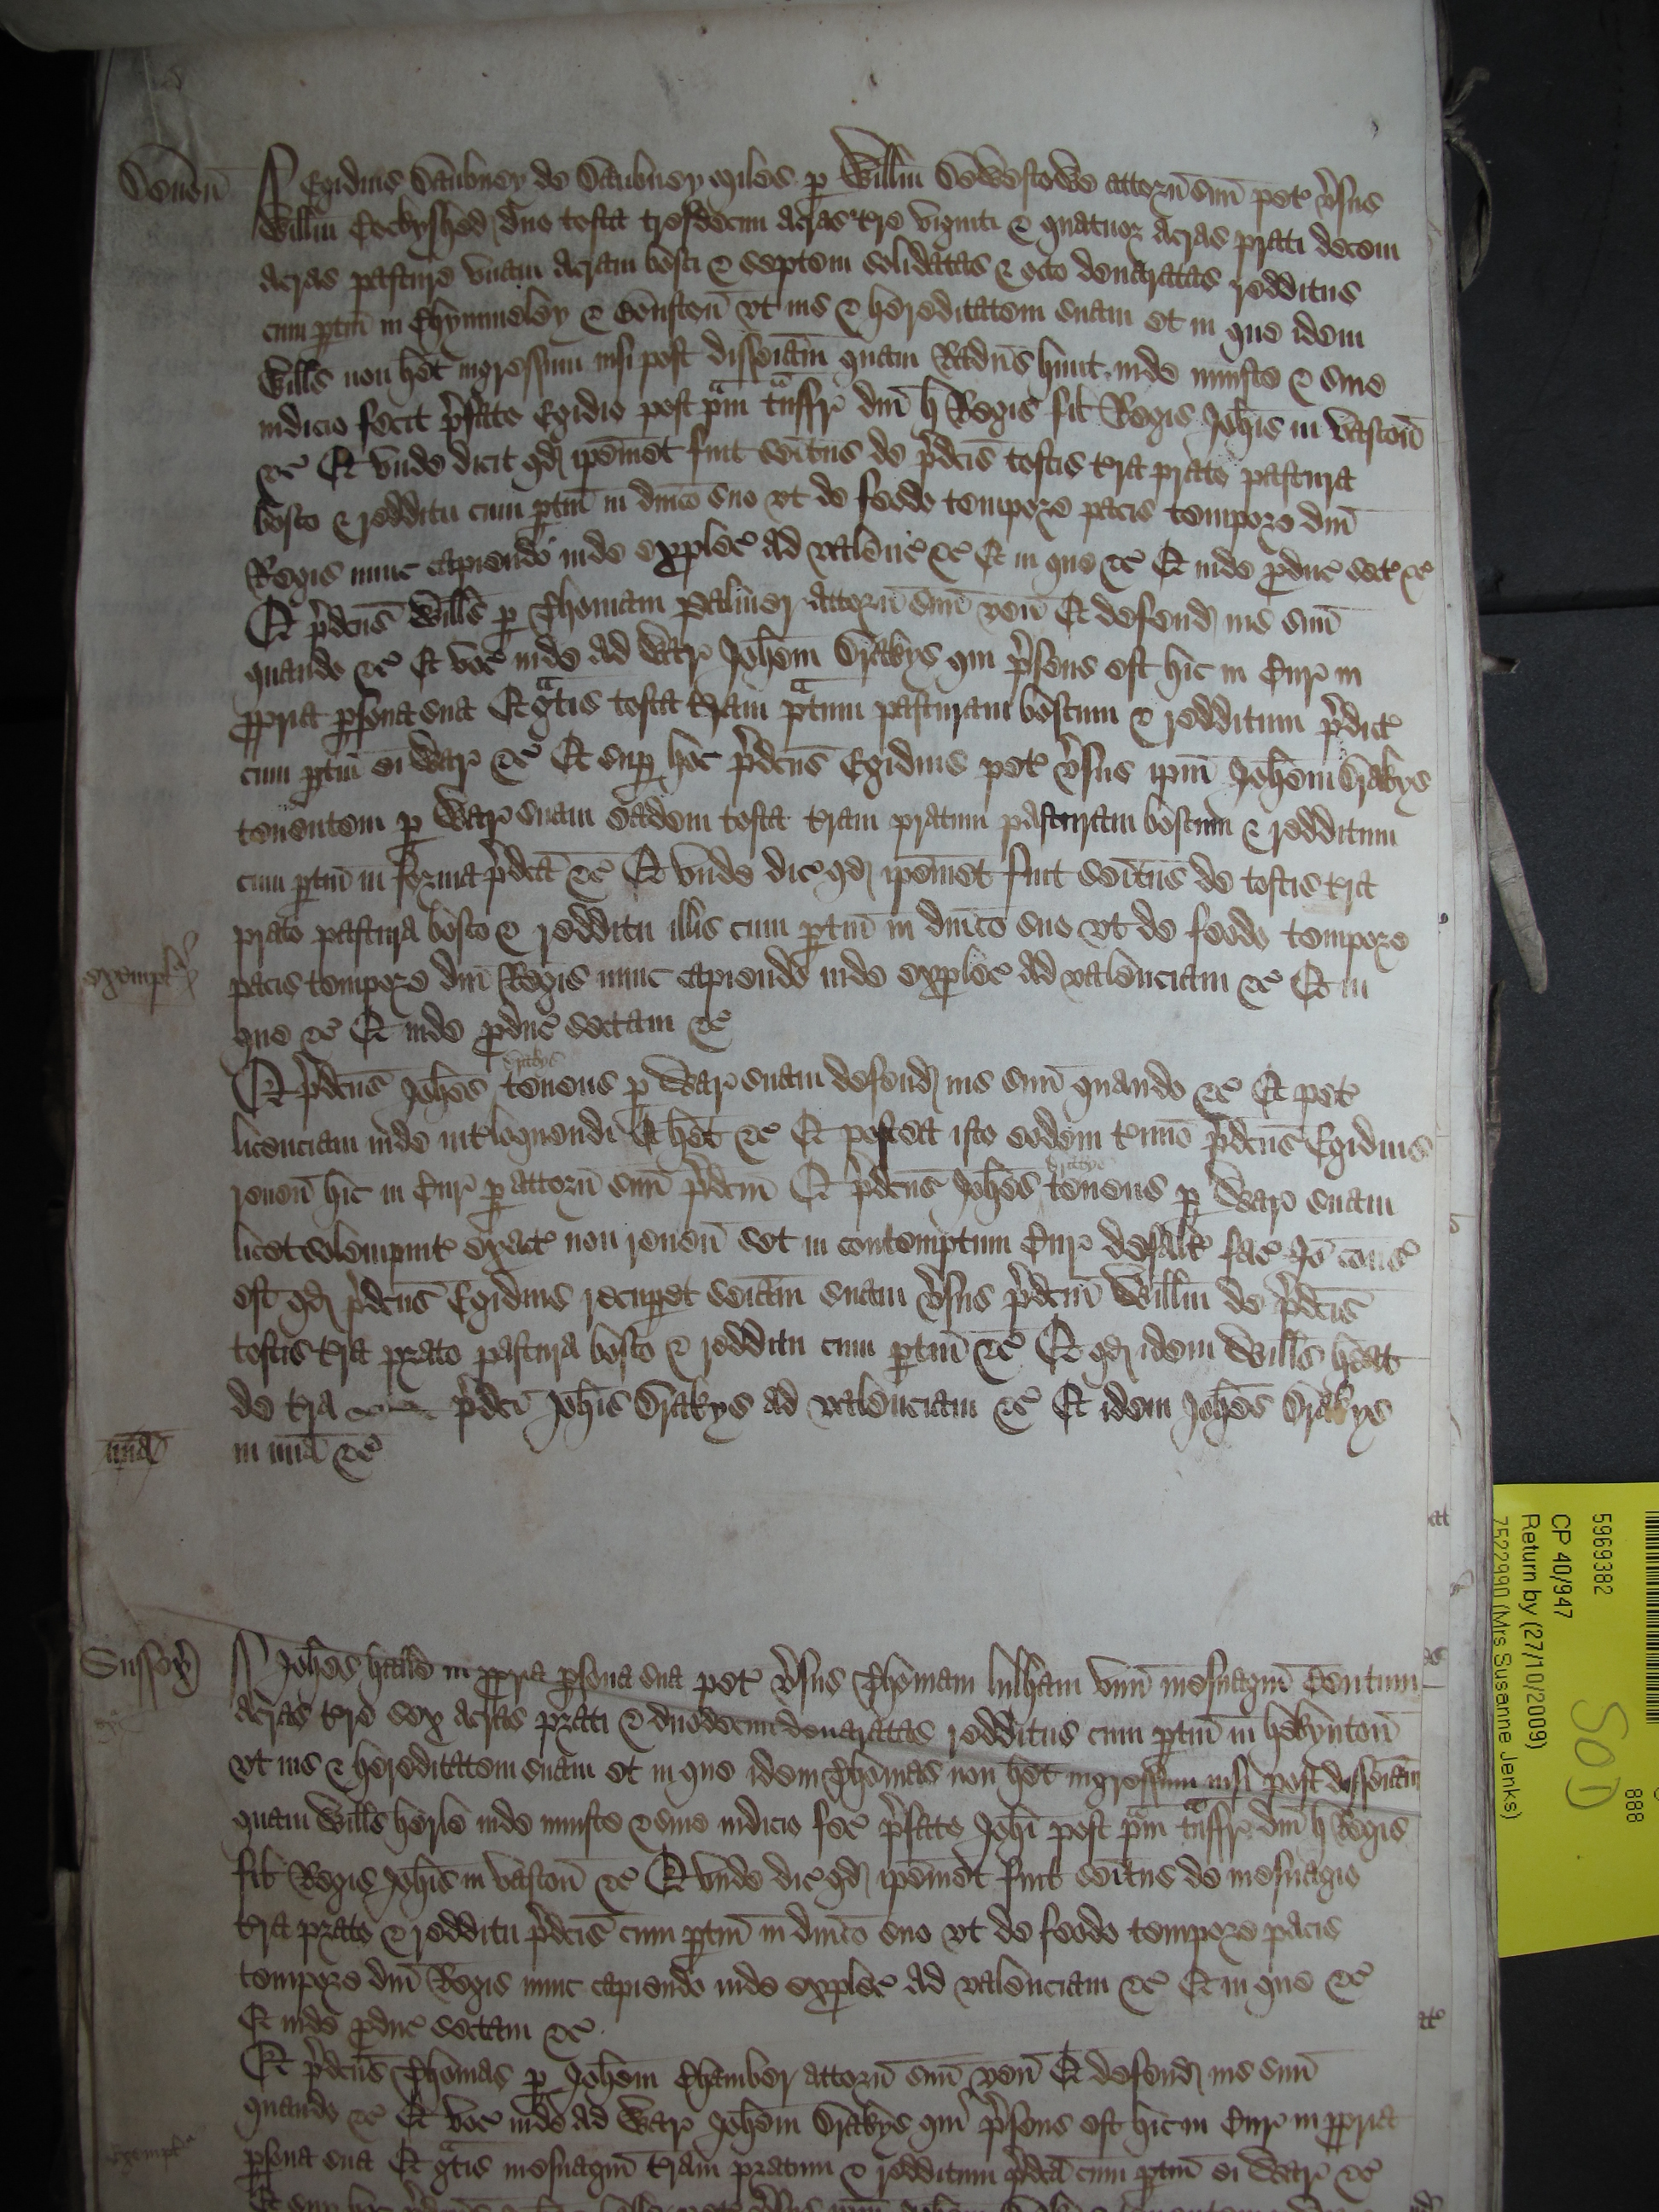 Devon Egidius Daubney de Daubney miles p Willm attorn suu pet vsus
Willm duo tofta tresdecim acras tre viginti & quatuor acras prati decem
acras pasture unam acram bosci & septem solidatas & octo denaratas redditus
cum ptin in Chymmeley & ut ius & hereditatem suam et in que idem
Wills non het ingressum nisi post disseiam quam Radus hunt inde iniuste & sine
iudicio fecit pfato Egidio post pam tnsfr dni h Regis fil Regis Johis in Vascon
&c Et unde dicit qd ipemet fuit seitus de pdcis toftis tra prato pastura
bosco & redditu cum ptin in dnico suo ut de feodo tempore pacis tempore dni
Regis nunc capiendo inde explec ad valenc &c Et in que &c Et inde pduc sect &c
Et pdcus Wills p Thomam Palmer attorn suu ven Et defend ius suu
quando &c Et voc inde ad War Johem Drakys qui psens est hic in Cur in
ppria psona sua Et gatis tofta tram patum pasturam boscum & redditum pdict
cum ptin ei War &c Et sup hoc pdcus Egidius pet vsus ipm Johem Drakys
tenentem p War suam eadem tofta tram pratum pasturam boscum & redditum
cum ptin in forma pdca &c Et unde dic qd ipemet fuit seitus de toftis tra
prato pastura bosco & redditu illis cum ptin in dnico suo ut de feodo tempore
pacis tempore dni Regis nunc capiendo inde explec ad valenciam &c Et in
que &c Et inde pduc sectam &c
Et pdcus Johes Drakys tenens p War suam defend ius suu quando &c Et pet
licenciam inde intloquendi Et het &c Et postea isto eodem tmino pdcus Egidius
reven hic in Cur p attorn suu pdcm Et pdcus Johes Drakys tenens p War suam
licet solempnit exact non reven set in contemptum Cur defalt fac Io cons
est qd pdcus Egidius recupet seiam suam vsus pdcm Willm de pdcis
toftis tra prato pastura bosco & redditu cum ptin &c Et qd idem Wills heat
de tra pdci Johis Drakys ad valenciam &c Et idem Johes Drakys
mia in mia &c
Sussex Johes halle in ppria psona sua pet vsus Thomam lulham unu mesuagiu Centum
acras tre sex acras prati & duodecim denaratas redditus cum ptin in
ut ius & hereditatem suam et in que idem Thomas non het ingressum nisi post disseiam
quam Wills herle inde iniuste & sine iudicio fec pfato Johi post pam tnsfr dni h Regis
fil Regis Johis in Vascon &c Et unde dic qd ipemet fuit seitus de mesuagio
tra prato & redditu pdcis cum ptin in dnico suo ut de feodo tempore pacis
tempore dni Regis nunc capiendo inde explec ad valenciam &c Et in que &c
Et inde pduc sectam &c
Et pdcus Thomas p Johem Chamber attorn suu ven Et defend ius suu
quando &c Et voc inde ad War Johem Drakys qui psens est hic in Cur in ppria
psona sua Et gatis mesuagiu tram pratum & redditum pdca cum ptin ei War &c
5969382
CP 40/947
Return by (27/10/2009)
7522990 (Mrs Susanne Jenks)
888
SOD